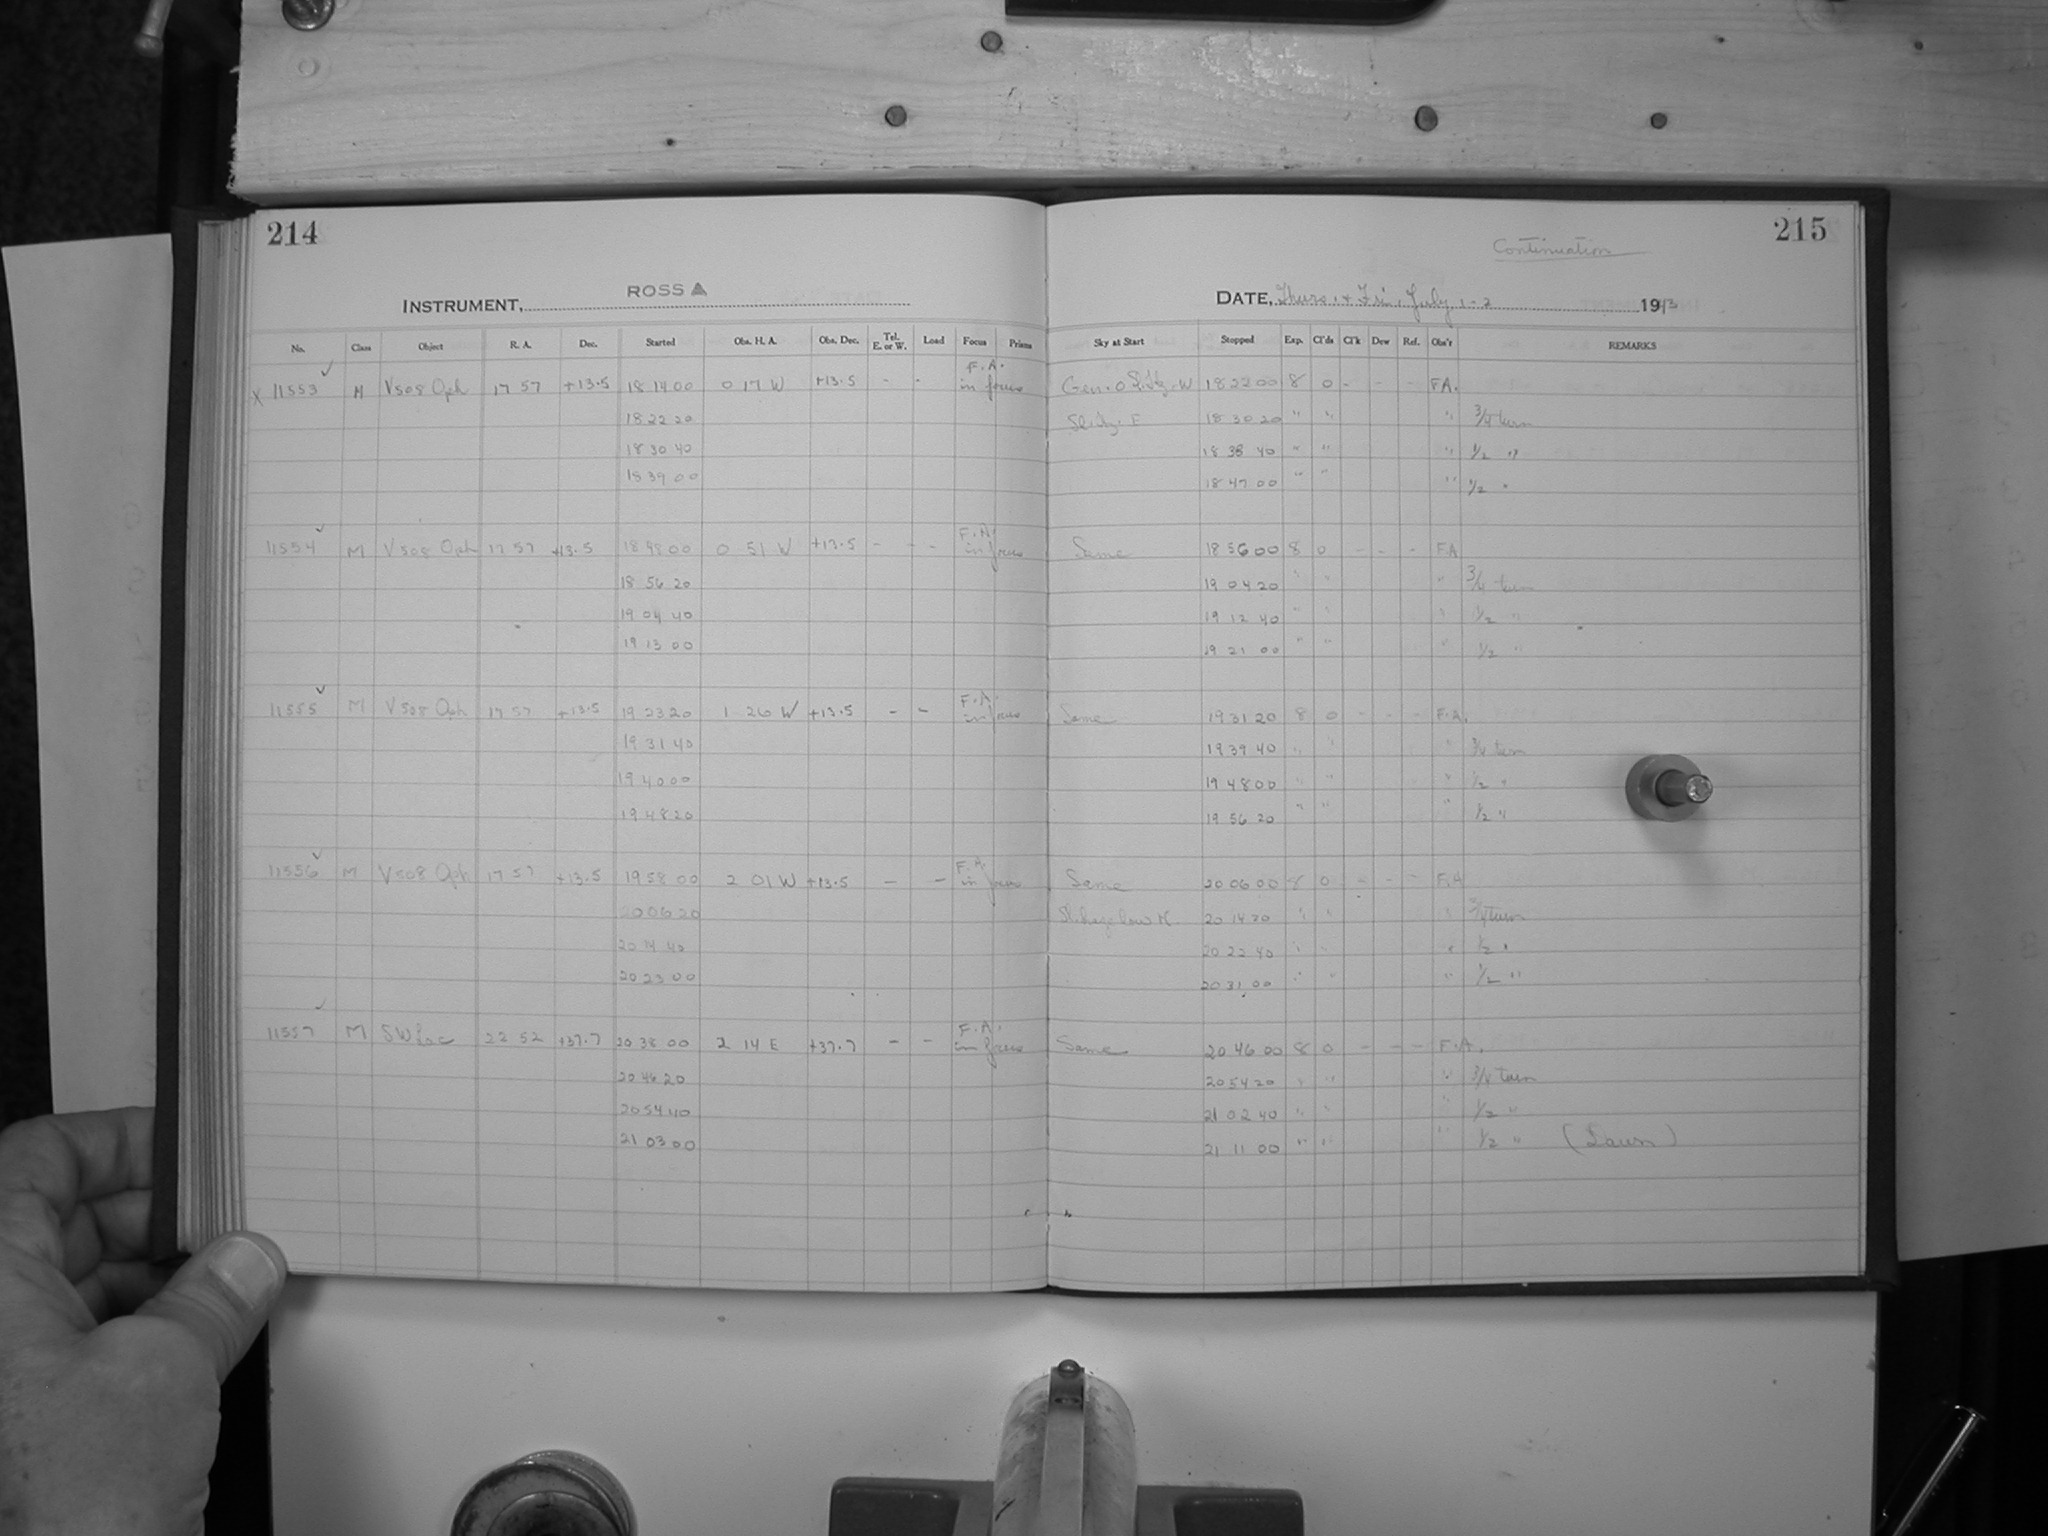 214
215
Continuation
INSTRUMENT, ROSS A
DATE, Thurs. + Fri. July 1-2 1943
No. Class Object R. A. Dec. Started Obs. H. A. Obs. Dec. Tel. E. or W. Load Focus Prisms Sky at Start Stopped Exp. Cl'ds Cl'k Dew Ref. Obs'r REMARKS
X 11553 ✓ M V508 Oph 17 57 +13.5 18 14 00 0 17 W +13.5 - - F.A. in focus Gen. W 18 22 00 8 0 - - - F.A.
18 22 20 E 18 30 20 " " " 3/4 turn
18 30 40 18 38 40 " " " 1/2 "
18 39 00 18 47 00 " " " 1/2 "
11554 ✓ M V508 Oph 17 57 +13.5 18 48 00 0 51 W +13.5 - - - F.A. in focus Same 18 56 00 8 0 - - - F.A
18 56 20 19 04 20 " " " 3/4 turn
19 04 40 19 12 40 " " " 1/2 "
19 13 00 19 21 00 " " " 1/2 "
11555 ✓ M V508 Oph 17 57 +13.5 19 23 20 1 26 W +13.5 - - F.A. in focus Same 19 31 20 8 0 - - - F.A.
19 31 40 19 39 40 " " " 3/4 turn
19 40 00 19 48 00 " " " 1/2 "
19 48 20 19 56 20 " " " 1/2 "
11556 ✓ M V508 Oph 17 57 +13.5 19 58 00 2 01 W +13.5 - - F.A. in focus Same 20 06 00 8 0 - - - F.A
20 06 20 20 14 20 " " " 3/4 turn
20 14 40 20 22 40 " " " 1/2 "
20 23 00 20 31 00 " " " 1/2 "
11557 ✓ M SW Lac 22 52 +37.7 20 38 00 2 14 E +37.7 - - F.A. in focus Same 20 46 00 8 0 - - - F.A.
20 46 20 20 54 20 " " " 3/4 turn
20 54 40 21 02 40 " " " 1/2 "
21 03 00 21 11 00 " " " 1/2 " (Dawn)